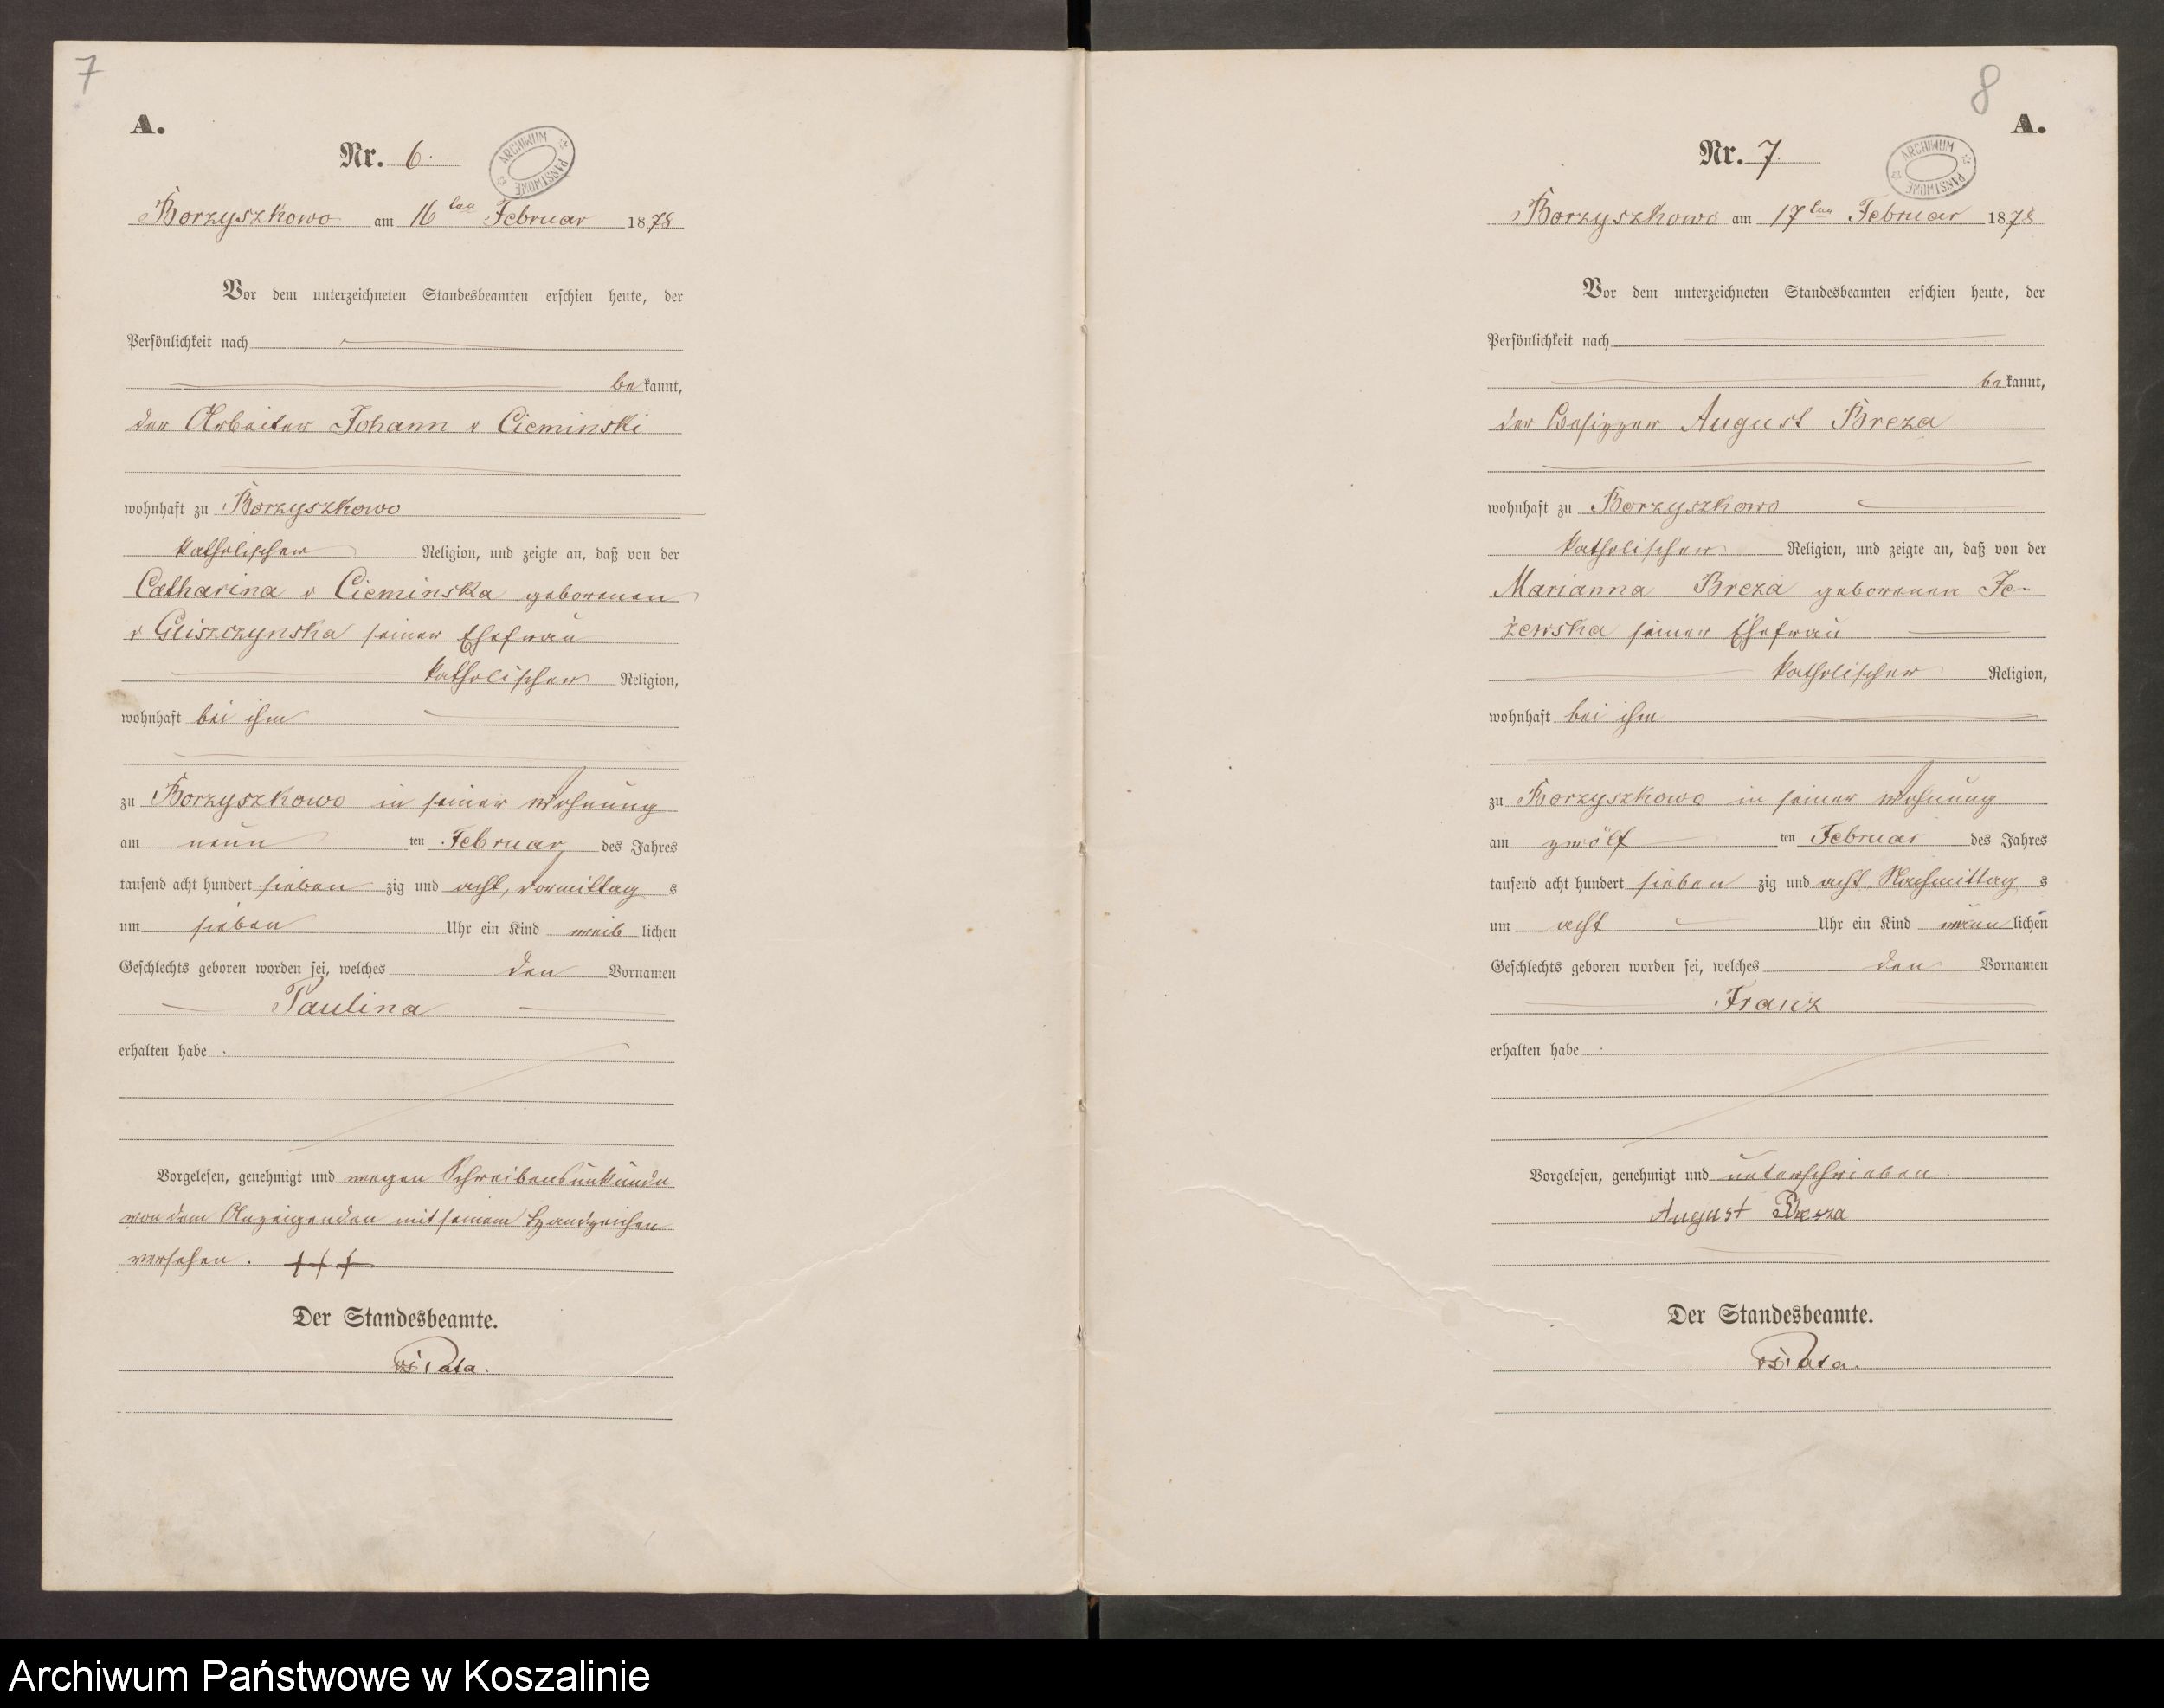 7
A.
Nr. 6.
ARCHIWUM PAŃSTWOWE
Borzyszkowo am 16ten Februar 1878
Vor dem unterzeichneten Standesbeamten erschien heute, der
Persönlichkeit nach
bekannt,
der Arbeiter Johann v Cieminski
wohnhaft zu Borzyszkowo
katholischer Religion, und zeigte an, daß von der
Catharina v Cieminska geborenen
v Gliszczynska seiner Ehefrau
katholischer Religion,
wohnhaft bei ihm
zu Borzyszkowo in seiner Wohnung
am neun ten Februar des Jahres
tausend acht hundert sieben zig und acht, Vormittag s
um sieben Uhr ein Kind weib lichen
Geschlechts geboren worden sei, welches den Vornamen
Paulina
erhalten habe.
Vorgelesen, genehmigt und wegen Schreibensunkunde
von dem Anzeigenden mit seinem Handzeichen
versehen. +++
Der Standesbeamte.
8
A.
Nr. 7.
ARCHIWUM PAŃSTWOWE
Borzyszkowo am 17ten Februar 1878
Vor dem unterzeichneten Standesbeamten erschien heute, der
Persönlichkeit nach
bekannt,
der Besitzer August Breza
wohnhaft zu Borzyszkowo
katholischer Religion, und zeigte an, daß von der
Marianna Breza geborenen Je-
żewska seiner Ehefrau
katholischer Religion,
wohnhaft bei ihm
zu Borzyszkowo in seiner Wohnung
am zwölf ten Februar des Jahres
tausend acht hundert sieben zig und acht, Nachmittag s
um acht Uhr ein Kind männ lichen
Geschlechts geboren worden sei, welches den Vornamen
Franz
erhalten habe.
Vorgelesen, genehmigt und unterschrieben.
August Breza
Der Standesbeamte.
Archiwum Państwowe w Koszalinie